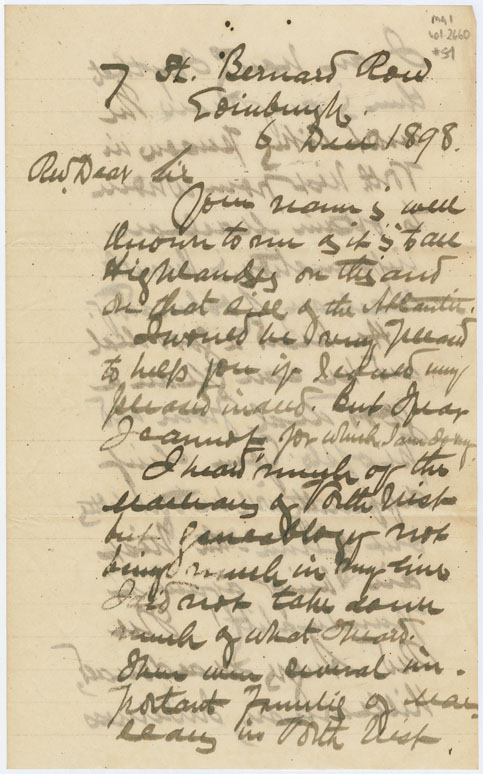 MG1
vol. 2660
#51
7 St. Bernard Row
Edinburgh.
6 Dec 1898.
Rev. Dear Sir
Your name is well
known to me as it is to all
Highlanders on this and
on that side of the Atlantic.
I would be very pleased
to help you if I could very
pleased indeed. But I fear
I cannot, for which I am sorry
I heard much of the
Macleans of North Uist
but genealogy not
being much in my line
I did not take down
much of what I heard.
There were several im-
portant families of Mac-
leans in North Uist